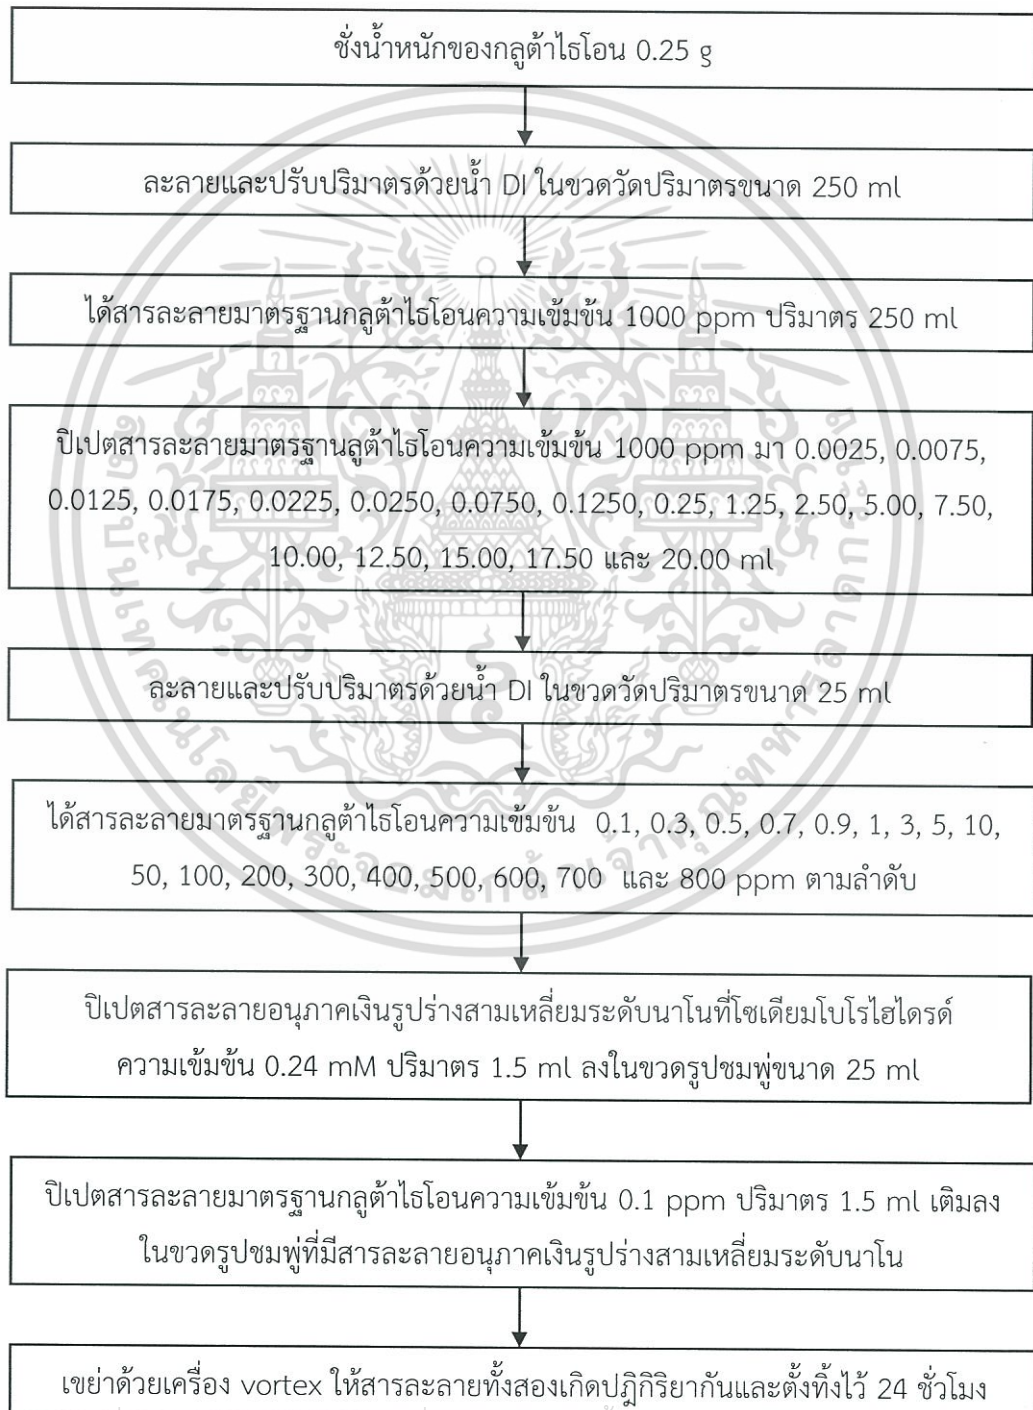 ชั่งน้ำหนักของกลูต้าไธโอน 0.25 g
ละลายและปรับปริมาตรด้วยน้ำ DI ในขวดวัดปริมาตรขนาด 250 ml
ได้สารละลายมาตรฐานกลูต้าไธโอนความเข้มข้น 1000 ppm ปริมาตร 250 ml
ปิเปตสารละลายมาตรฐานลูต้าไธโอนความเข้มข้น 1000 ppm มา 0.0025, 0.0075,
0.0125, 0.0175, 0.0225, 0.0250, 0.0750, 0.1250, 0.25, 1.25, 2.50, 5.00, 7.50,
10.00, 12.50, 15.00, 17.50 และ 20.00 ml
ละลายและปรับปริมาตรด้วยน้ำ DI ในขวดวัดปริมาตรขนาด 25 ml
ได้สารละลายมาตรฐานกลูต้าไธโอนความเข้มข้น 0.1, 0.3, 0.5, 0.7, 0.9, 1, 3, 5, 10,
50, 100, 200, 300, 400, 500, 600, 700 และ 800 ppm ตามลำดับ
ปิเปตสารละลายอนุภาคเงินรูปร่างสามเหลี่ยมระดับนาโนที่โซเดียมโบโรไฮไดรด์
ความเข้มข้น 0.24 mM ปริมาตร 1.5 ml ลงในขวดรูปชมพู่ขนาด 25 ml
ปิเปตสารละลายมาตรฐานกลูต้าไธโอนความเข้มข้น 0.1 ppm ปริมาตร 1.5 ml เติมลง
ในขวดรูปชมพู่ที่มีสารละลายอนุภาคเงินรูปร่างสามเหลี่ยมระดับนาโน
เขย่าด้วยเครื่อง vortex ให้สารละลายทั้งสองเกิดปฏิกิริยากันและตั้งทิ้งไว้ 24 ชั่วโมง